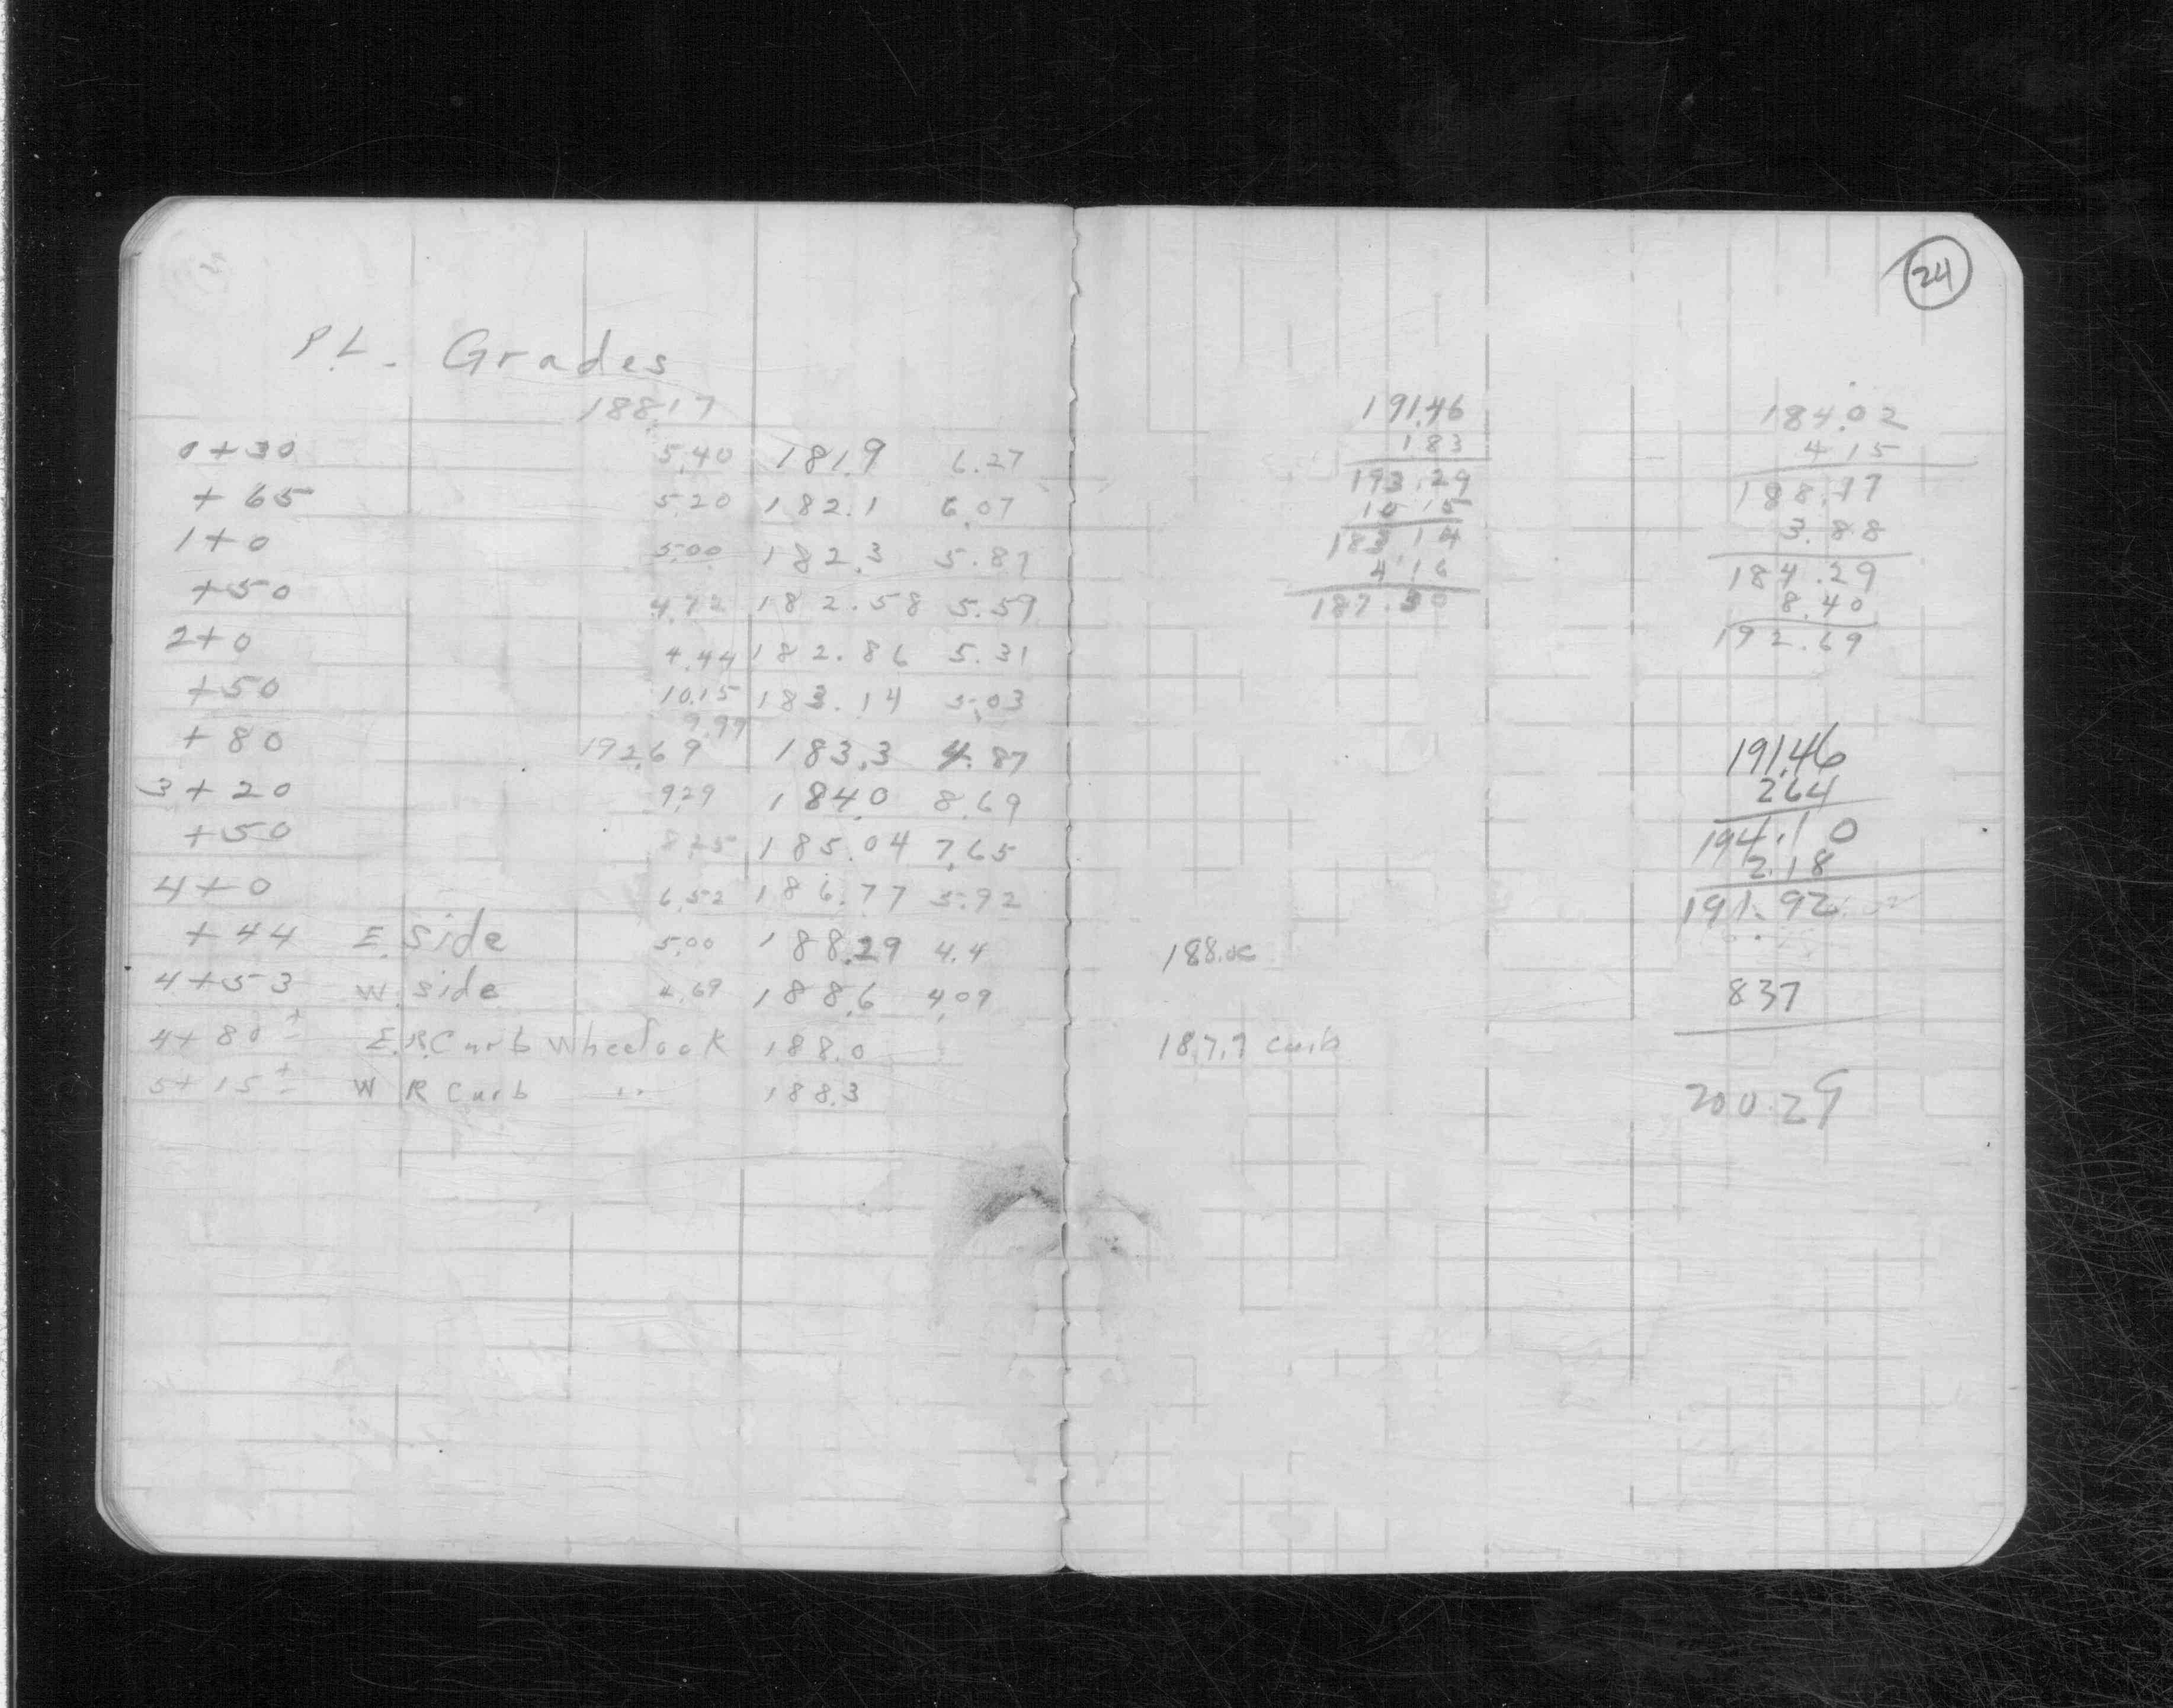 24
P.L. Grades
188.17
0+30 5.40 181.9 6.27
+65 5.20 182.1 6.07
1+0 5.00 182.3 5.87
+50 4.72 182.58 5.59
2+0 4.44 182.86 5.31
+50 10.15 183.14 5.03
9.99
+80 192.69 183.3 4.87
3+20 9.29 184.0 8.69
+50 8.25 185.04 7.65
4+0 6.52 186.77 5.92
+44 E. Side 5.00 188.29 4.4
4+53 W. Side 4.69 188.6 4.09
4+80± E.R. Curb Wheelock 188.0
5+15± W R Curb " 188.3
191.46
1.83
193.29
10.15
183.14
4.16
187.30
188.
187.7 curb
184.02
4.15
188.17
3.88
184.29
8.40
192.69
191.46
2.64
194.10
2.18
191.92
837
200.29